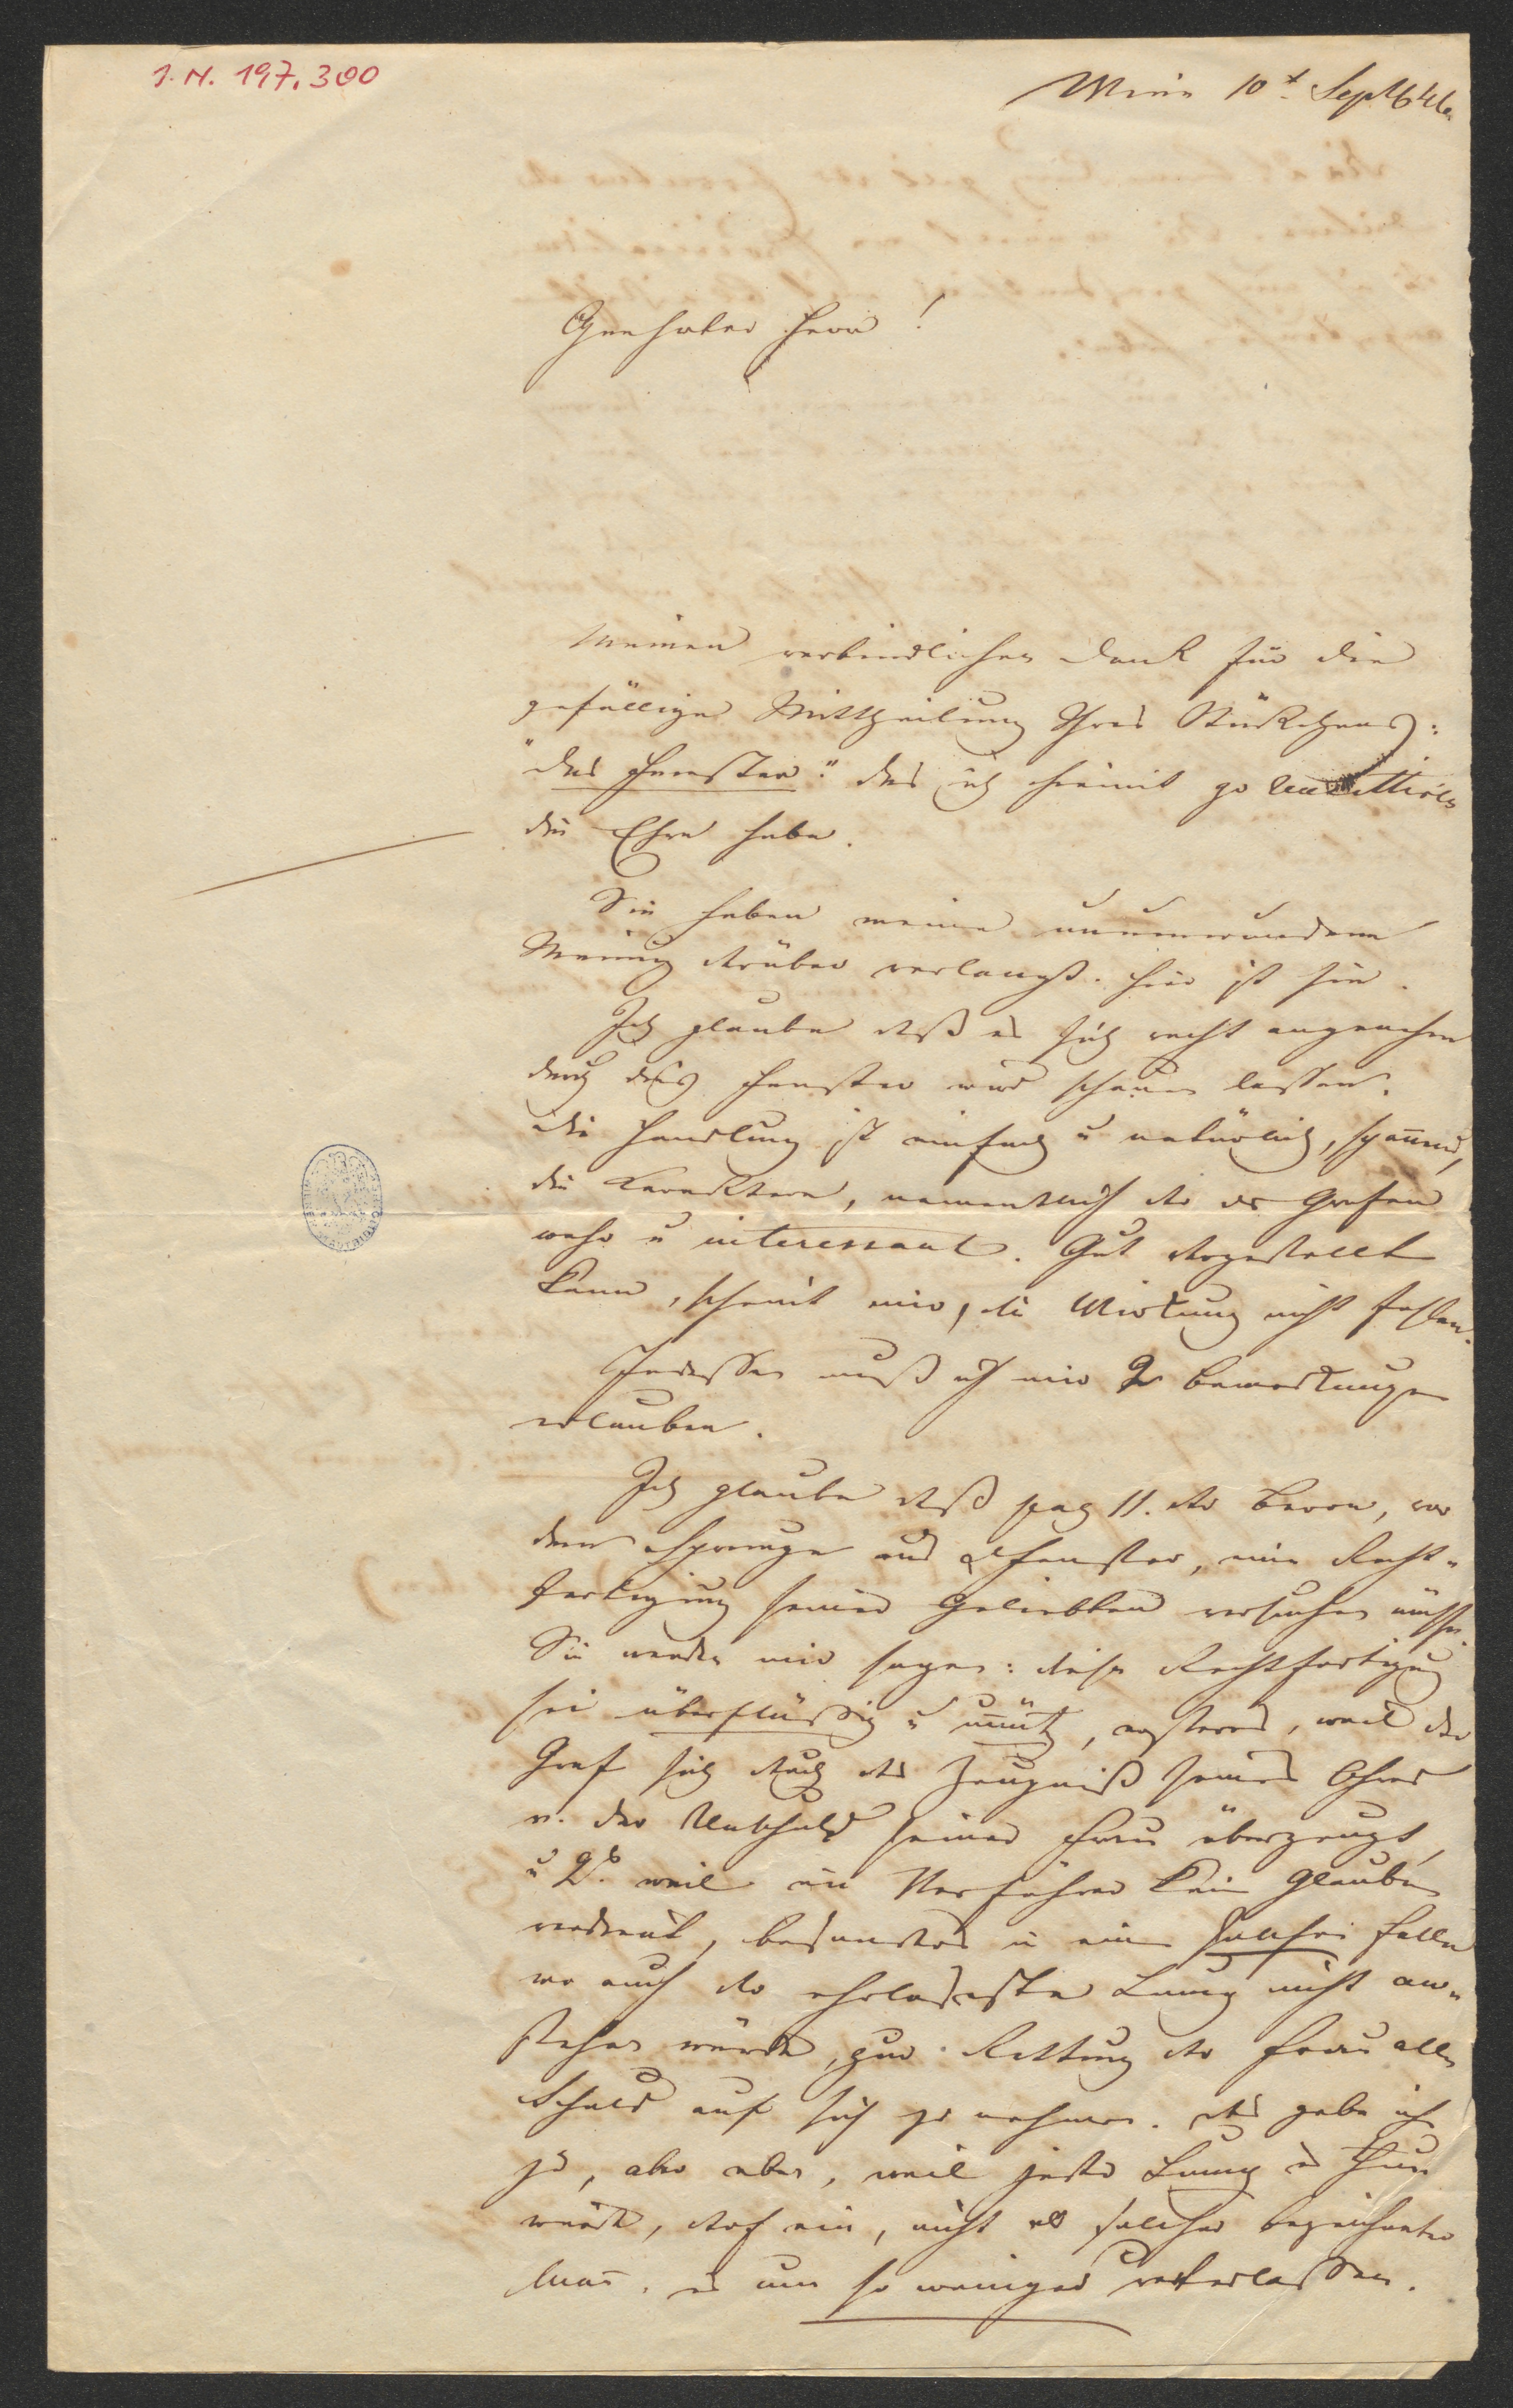 I. N. 197.300
Wien 10t Septb 46
Geehrter Herr!
Meinen verbindlichen Dank für die
gefällige Mittheilung Ihres Stückchens:
"das Fenster." das ich hiemit zu
die Ehre habe.
Sie haben meine unumwundene
Meinung drüber verlangt. Hier ist sie.
Ich glaube daß es sich recht angenehm
durch dies Fenster wird schauen lassen.
Die Handlung ist einfach u natürlich, spannend,
die Karaktere, namentlich der des Grafen
wahr u interessant. Gut dargestellt
kann, scheint mir, die Wirkung nicht fehlen.
Indessen muß ich mir 2 Bemerkungen
erlauben.
Ich glaube daß pag 11. der Baron, vor
dem Sprunge aus d Fenster, eine Recht-
fertigung seiner Geliebten versuchen müsse.
Sie werden mir sagen: diese Rechtfertigung
sei überflüssig u unnütz, ersteres, weil der
Graf sich durch das Zeugniß seines Ohres
v. der Unschuld seiner Frau überzeugt,
u 2t. weil ein Verführer kein Glauben
verdient, besonders in einem solchen Falle
wo auch der ehrloseste Lump nicht an-
stehen würde, zur Rettung der Frau alle
Schuld auf sich zu nehmen. Das gebe ich
zu, aber eben, weil jeder Lump es thun
würde, darf ein, nicht als solcher bezeichneter
Mann, es um so weniger unterlassen.